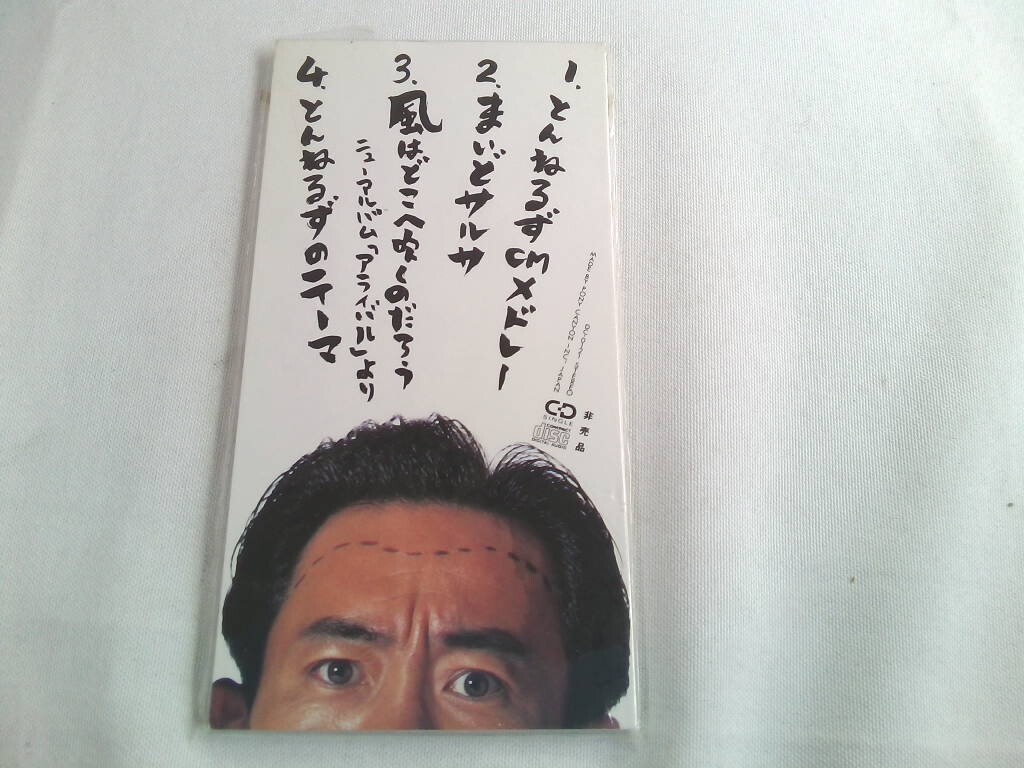 1. とんねるずCMメドレー
2. まいどサルサ
3. 風はどこへ吹くのだろう
ニューアルバム「アライバル」より
4. とんねるずのテーマ
MADE BY PONY CANYON INC., JAPAN
STEREO
CD
SINGLE
COMPACT
disc
DIGITAL AUDIO
非売品